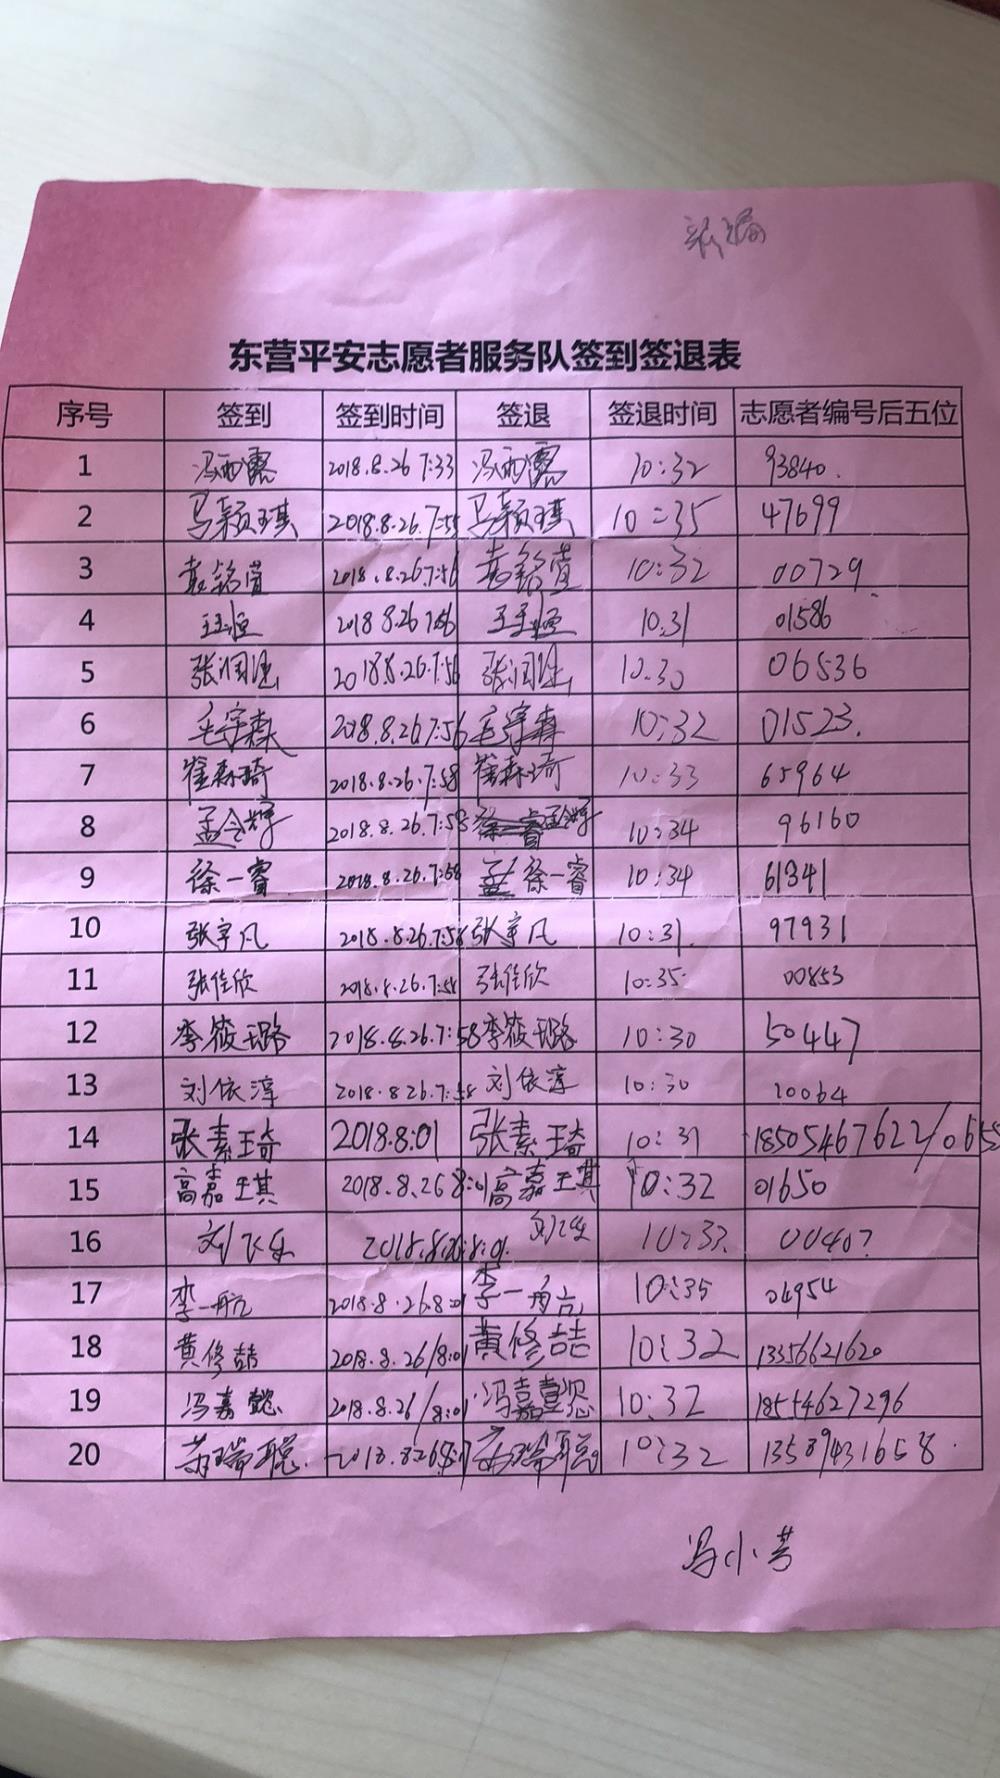 东营平安志愿者服务队签到签退表
序号 签到 签到时间 签退 签退时间 志愿者编号后五位
1 冯雨露 2018.8.26 7:33 冯雨露 10:32 93840.
2 马颖琪 2018.8.26.7:55 马颖琪 10:35 47699
3 袁铭萱 2018.8.26 7:56 袁铭萱 10:32 00729
4 2018 8.26 7:56 10.31 01586
5 2018.8.26.7:56 10.30 06536
6 毛宇森 2018.8.26.7:56 毛宇森 10:32 01523.
7 崔森琦 2018.8.26.7:58 崔森琦 10:33 65964
8 孟令辉 2018.8.26.7:58 孟令辉 10:34 96160
9 徐一睿 2018.8.26.7:58 徐一睿 10:34 61341
10 张宇凡 2018.8.26.7:58 张宇凡 10:31. 97931
11 张佳欣 2018.8.26.7:58 张佳欣 10:35 00853
12 李筱璐 2018.8.26.7:58 李筱璐 10:30 50447
13 刘依淳 2018.8.26.7:58 刘依淳 10:30 20064
14 张素琦 2018.8:01 张素琦 10:31 18505467622/
15 高嘉琪 2018.8.26 8:01 高嘉琪 10:32 01650
16 刘飞乐 2018.8.26.8:01. 10:33.
17 李一航 2018.8.26.8:01 李一航 10:35 04954
18 黄修喆 2018.8.26/8:01 黄修喆 10:32 13356621620
19 冯嘉懿 2018.8.26/8:01 冯嘉懿 10:32 18554627296
20 10:32 13589431658
冯小芳